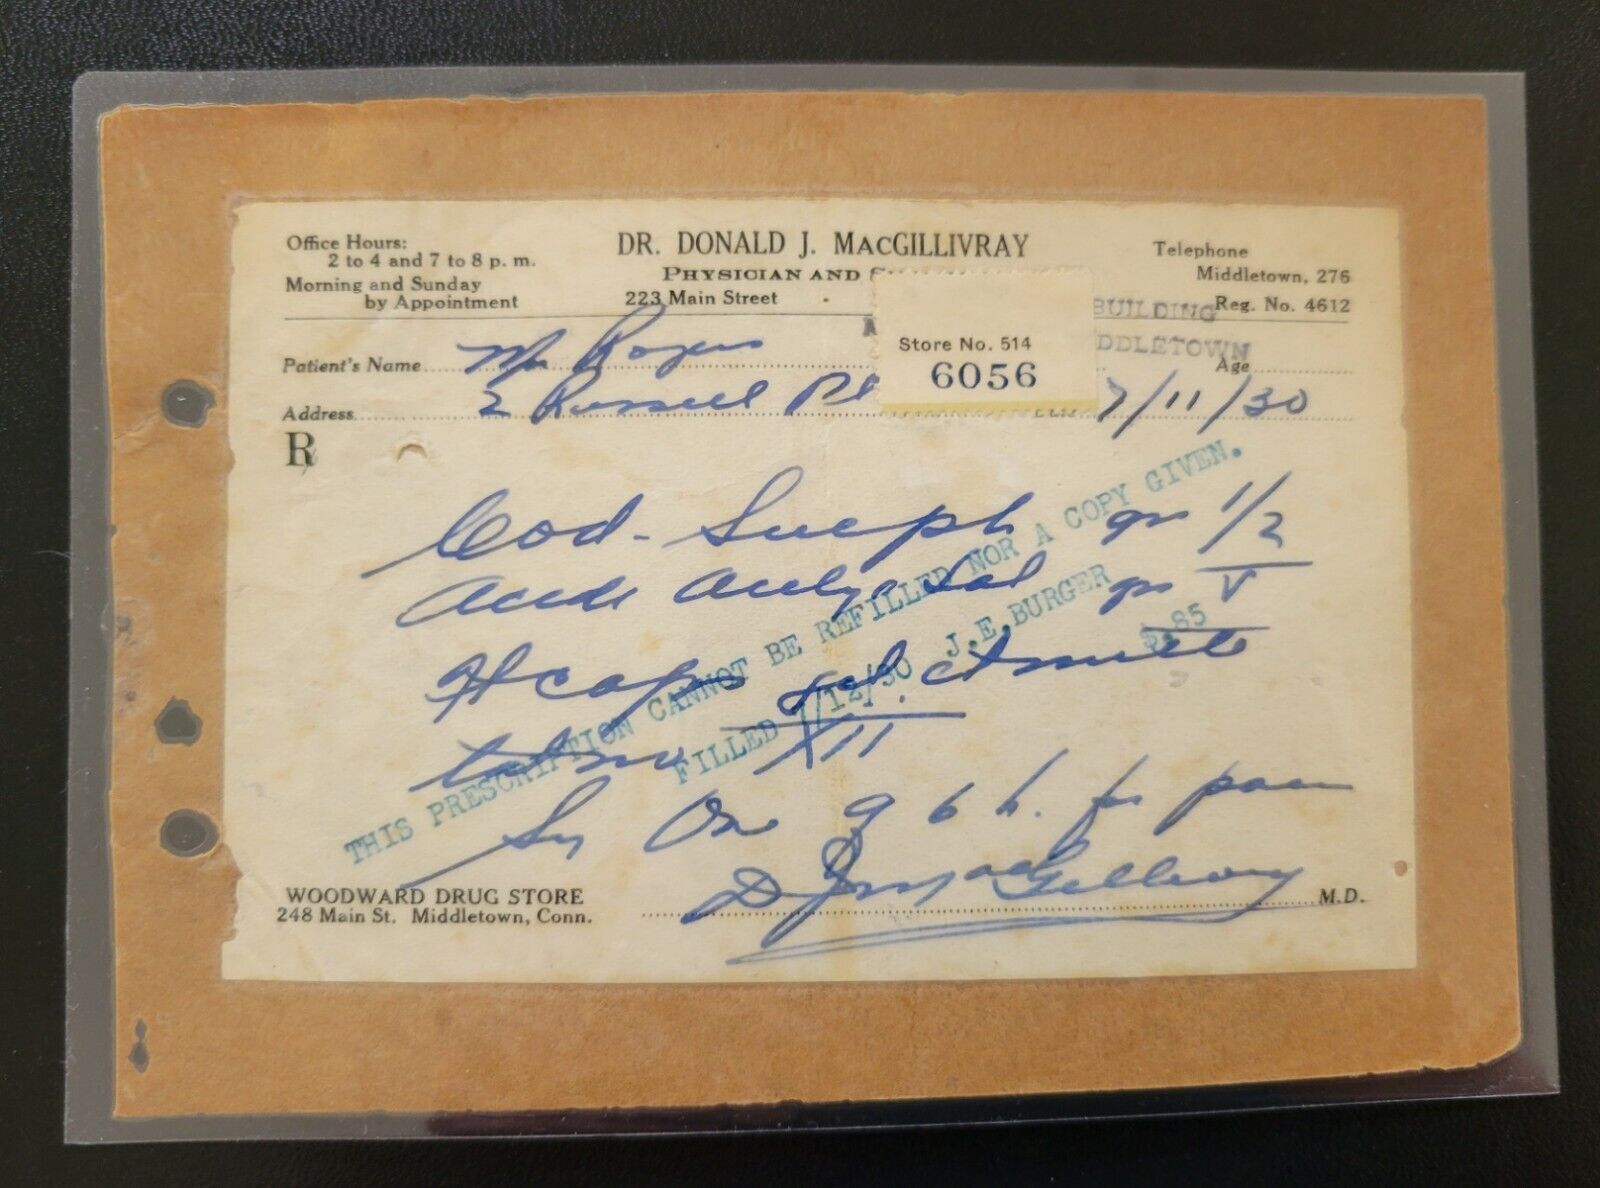 Office Hours:
2 to 4 and 7 to 8 p. m.
Morning and Sunday
by Appointment
DR. DONALD J. MACGILLIVRAY
PHYSICIAN AND
223 Main Street
Telephone
Middletown, 276
Reg. No. 4612
BUILDING
DDLETOWN
Store No. 514
6056
Patient's Name Mr Rogers
Age
Address 2 Russell Pl 7/11/30
℞
Cod. Sulph gr 1/2
gr V
caps
XII
One q 6 h. for pain
D J MacGillivray M.D.
THIS PRESCRIPTION CANNOT BE REFILLED NOR A COPY GIVEN.
FILLED 7/12/30 J.E.BURGER $.85
WOODWARD DRUG STORE
248 Main St. Middletown, Conn.